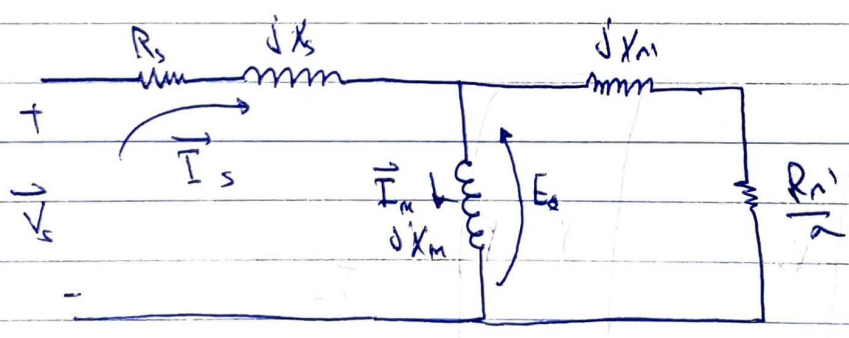 Rs jXs jXn'
+
→Is
→Vs →Im ↓ jXm Es Rn'/s
-